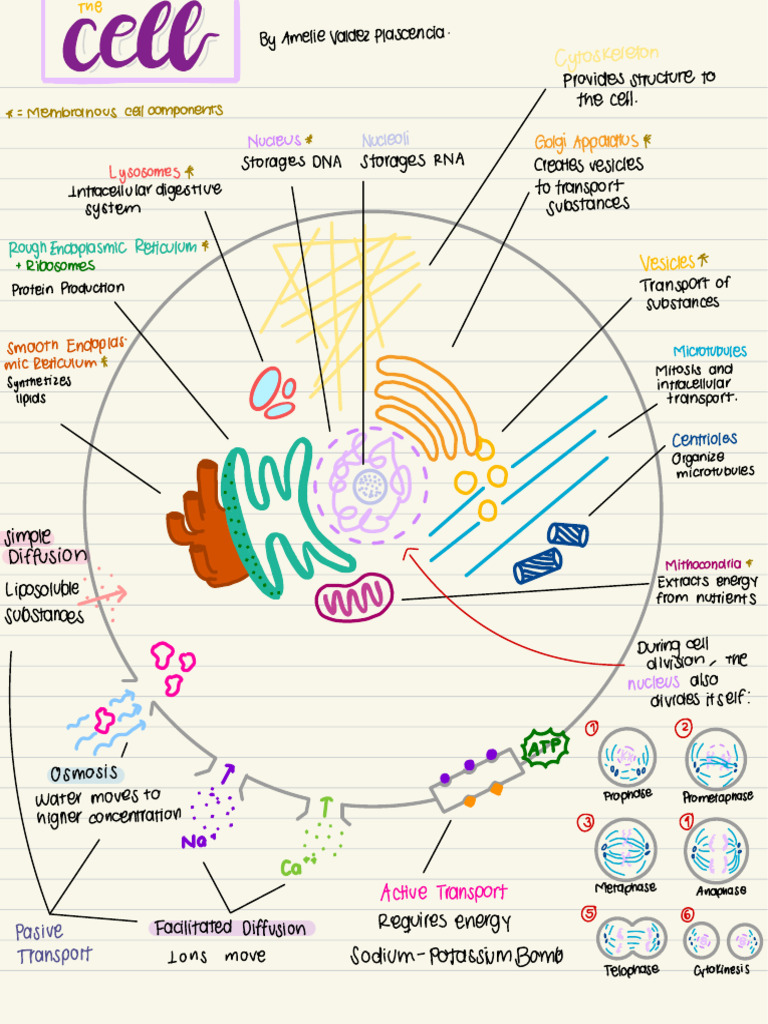 The
cell
By Amelie Valdez Plascencia.
* = Membranous cell components
Cytoskeleton
Provides structure to
the cell.
Nucleus *
Storages DNA
Nucleoli
Storages RNA
Golgi Apparatus *
Creates vesicles
to transport
substances
Lysosomes *
Intracellular digestive
system
Rough Endoplasmic Reticulum *
+ Ribosomes
Protein Production
Vesicles *
Transport of
substances
Smooth Endoplas-
mic Reticulum *
Synthetizes
lipids
Microtubules
Mitosis and
intracellular
transport.
Centrioles
Organize
microtubules
Simple
Diffusion
Liposoluble
substances
Mithocondria *
Extracts energy
from nutrients
During cell
division, the
nucleus also
divides itself:
Osmosis
Water moves to
higher concentration
Na+
Ca++
ATP
1
Prophase
2
Prometaphase
3
Metaphase
4
Anaphase
5
Telophase
6
Cytokinesis
Active Transport
Requires energy
Sodium-Potassium Bomb
Pasive
Transport
Facilitated Diffusion
Ions move